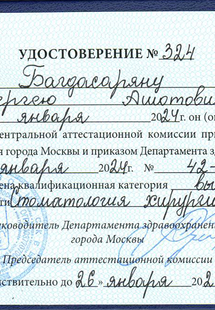 УДОСТОВЕРЕНИЕ № 324
Багдасаряну
ергею Ашотови
января 2024г. он (он
ентральной аттестационной комиссии при
я города Москвы и приказом Департамента з
января 2024г. № 42-
ена квалификационная категория вы
ти Стоматология хирурги
уководитель Департамента здравоохране
города Москвы
Председатель аттестационной комиссии
йствительно до «26» января 202